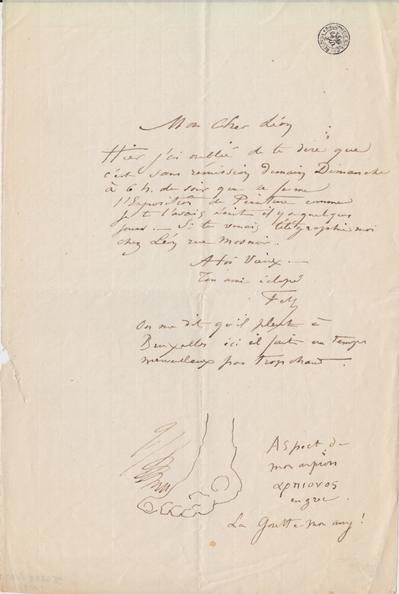 Mon Cher Léon
Hier j'ai oublié de te dire que
c'est sans rémission demain Dimanche
à 6 h. du soir que se ferme
l'Exposition de Peinture comme
je te l'avais écrit il y a quelques
jours — Si tu venais télégraphie moi
chez Léon rue Mosnier.
A toi Vieux —
Ton ami éclopé
Fély
On me dit qu'il pleut à
Bruxelles ici il fait un temps
merveilleux pas trop chaud.
Aspect de
mon arpion
αρπιονος
en grec.
La Goutte mon amy!